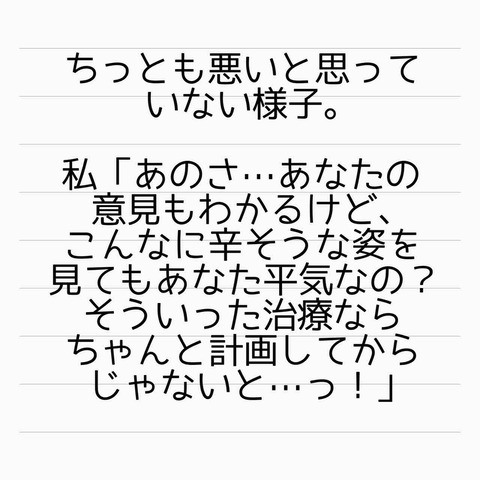 ちっとも悪いと思って
いない様子。
私「あのさ…あなたの
意見もわかるけど、
こんなに辛そうな姿を
見てもあなた平気なの？
そういった治療なら
ちゃんと計画してから
じゃないと…っ！」